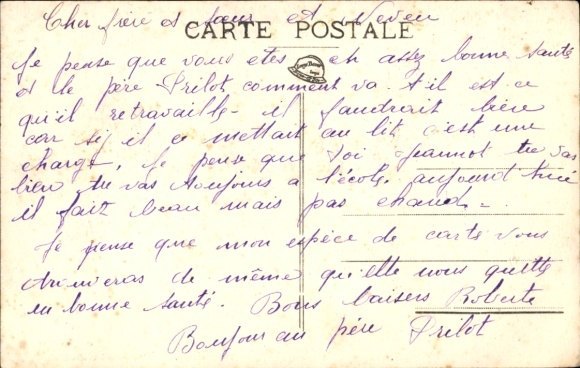 Cher frère et sœur et Neveu
CARTE POSTALE
Je pense que vous etes en assez bonne santé
et le père Prilot comment va-t-il est ce
qu'il retravaille - il faudrait bien
car si il ce mettait au lit c'est une
charge, Je pense que toi Jeannot tu vas
bien tu vas toujours a l'école, aujourd'hui
il fait beau mais pas chaud -
Je pense que mon espèce de carte vous
trouveras de même qu'elle nous quitte
en bonne santé. Bons baisers Roberte
Bonjour au père Prilot